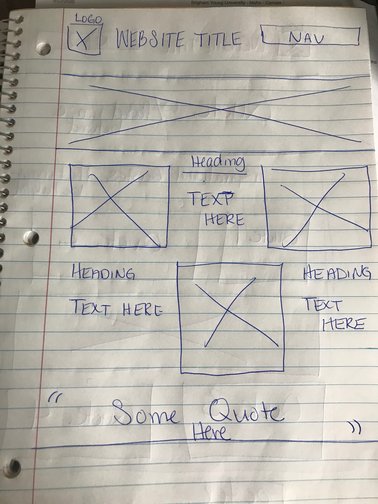 Brigham Young University - Idaho - Canvas
LOGO
X WEBSITE TITLE NAV
Heading
TEXT
HERE
HEADING
TEXT HERE
HEADING
TEXT
HERE
“ Some Quote
Here ”